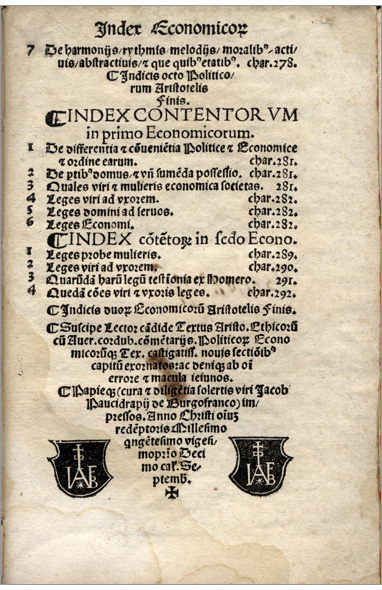 Index Economicoꝝ
7 De harmonijs/rythmis melodijs/moralibꝰ acti/
uis/abstractiuis/⁊ que quibꝰ etatibꝰ. char.278.
¶Indicis octo Politico/
rum Aristotelis
Finis.
¶INDEX CONTENTORVM
in primo Economicorum.
1 De differentia ⁊ cōueniētia Politice ⁊ Economice
⁊ ordine earum. char.281.
2 De ptibꝰ domus/⁊ vn̄ sumēda possessio. char.281.
3 Quales viri ⁊ mulieris economica societas. 281.
4 Leges viri ad vxorem. char.282.
5 Leges domini ad seruos. char.282.
6 Leges Economi. char.282.
¶INDEX cōtētoꝝ in scdo Econo.
1 Leges probe mulieris. char.289.
2 Leges viri ad vxorem. char.290.
3 Quarūdā harū legū testīonia ex Homero. 291.
4 Quedā cōes viri ⁊ vxoris leges. char.292.
¶Indicis duoꝝ Economicorū Aristotelis Finis.
¶Suscipe Lector cādide Textus Aristo. Ethicorū
cū Auer. cordub. cōmētarijs. Politicoꝝ Econo
micorūqꝫ Tex. castigatiss. nouis sectiōibꝰ
capitū exornatos: ac deniqꝫ ab oī
errore ⁊ macula ieiunos.
¶Papieqꝫ (cura ⁊ diligētia solertis viri Jacob
Paucidrapij de Burgofranco) im/
pressos. Anno Christi oīuꝫ
redēptoris Millesimo
qngētesimo vigesi/
moprīo Deci
mo cal. Se/
ptemb.
IAB
IAB